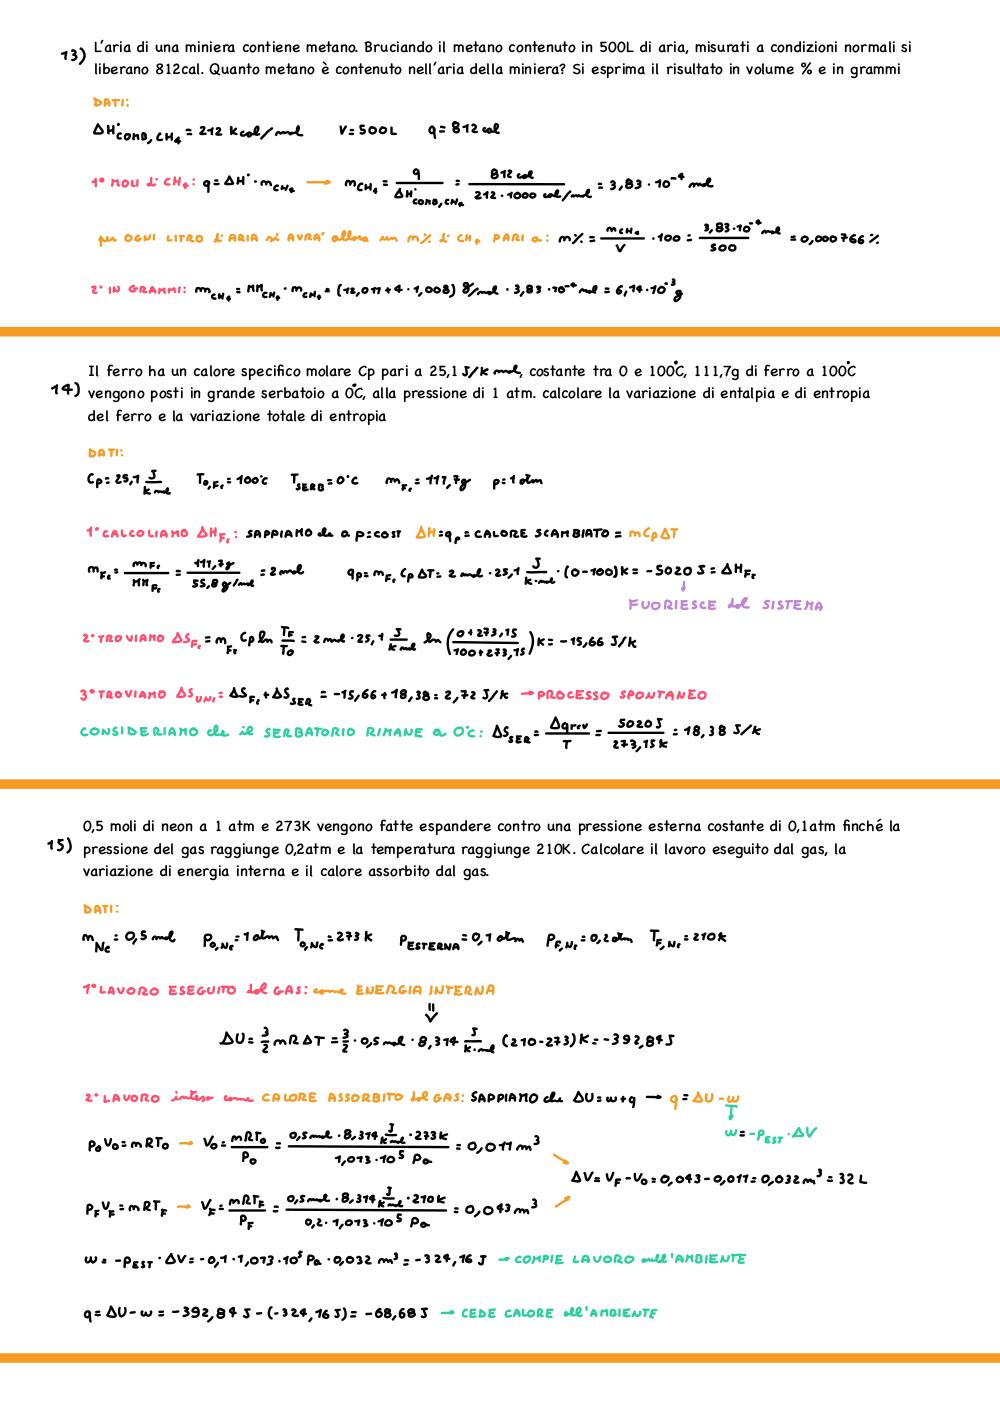 13) L'aria di una miniera contiene metano. Bruciando il metano contenuto in 500L di aria, misurati a condizioni normali si
liberano 812cal. Quanto metano è contenuto nell'aria della miniera? Si esprima il risultato in volume % e in grammi
DATI:
ΔH°COMB, CH₄ = 212 Kcal/mol V=500L q=812 cal
1° MOLI di CH₄: q=ΔH°·nCH₄ → nCH₄ = q / ΔH°COMB,CH₄ = 812 cal / 212·1000 cal/mol = 3,83·10⁻⁴ mol
per OGNI LITRO d'ARIA si AVRA' allora un n% di CH₄ PARI a: n% = nCH₄ / V · 100 = 3,83·10⁻⁴ mol / 500 = 0,000766 %
2° IN GRAMMI: mCH₄ = MMCH₄ · nCH₄ = (12,011+4·1,008) g/mol · 3,83·10⁻⁴ mol = 6,14·10⁻³ g
14) Il ferro ha un calore specifico molare Cp pari a 25,1 J/K mol, costante tra 0 e 100°C, 111,7g di ferro a 100°C
vengono posti in grande serbatoio a 0°C, alla pressione di 1 atm. calcolare la variazione di entalpia e di entropia
del ferro e la variazione totale di entropia
DATI:
Cp = 25,1 J/K mol T0,Fe = 100°C TSERB = 0°C mFe = 111,7g p=1 atm
1° CALCOLIAMO ΔHFe: SAPPIAMO che a p=cost ΔH=qp = CALORE SCAMBIATO = nCpΔT
nFe = mFe / MMFe = 111,7g / 55,8 g/mol = 2 mol qp = nFe Cp ΔT = 2 mol · 25,1 J/K·mol · (0-100)K = -5020 J = ΔHFe
↓
FUORIESCE dal SISTEMA
2° TROVIAMO ΔSFe = nFe Cp ln TF/T0 = 2 mol · 25,1 J/K mol ln (0+273,15 / 100+273,15) K = -15,66 J/K
3° TROVIAMO ΔSUNI = ΔSFe + ΔSSER = -15,66 + 18,38 = 2,72 J/K → PROCESSO SPONTANEO
CONSIDERIAMO che il SERBATORIO RIMANE a 0°C: ΔSSER = Δqrev / T = 5020 J / 273,15 K = 18,38 J/K
15) 0,5 moli di neon a 1 atm e 273K vengono fatte espandere contro una pressione esterna costante di 0,1atm finché la
pressione del gas raggiunge 0,2atm e la temperatura raggiunge 210K. Calcolare il lavoro eseguito dal gas, la
variazione di energia interna e il calore assorbito dal gas.
DATI:
nNe = 0,5 mol p0,Ne = 1 atm T0,Ne = 273 K pESTERNA = 0,1 atm pF,Ne = 0,2 atm TF,Ne = 210K
1° LAVORO ESEGUITO dal GAS: come ENERGIA INTERNA
⇓
ΔU = 3/2 nRΔT = 3/2 · 0,5 mol · 8,314 J/K·mol (210-273) K = -392,84 J
2° LAVORO inteso come CALORE ASSORBITO dal GAS: SAPPIAMO che ΔU=w+q → q = ΔU - w
↓
w = -pEST · ΔV
p0V0 = nRT0 → V0 = nRT0 / p0 = 0,5 mol · 8,314 J/K·mol · 273K / 1,013·10⁵ Pa = 0,011 m³
ΔV = VF - V0 = 0,043 - 0,011 = 0,032 m³ = 32 L
pFVF = nRTF → VF = nRTF / pF = 0,5 mol · 8,314 J/K·mol · 210K / 0,2 · 1,013·10⁵ Pa = 0,043 m³
w = -pEST · ΔV = -0,1 · 1,013·10⁵ Pa · 0,032 m³ = -324,16 J → COMPIE LAVORO sull'AMBIENTE
q = ΔU - w = -392,84 J - (-324,16 J) = -68,68 J → CEDE CALORE all'AMBIENTE